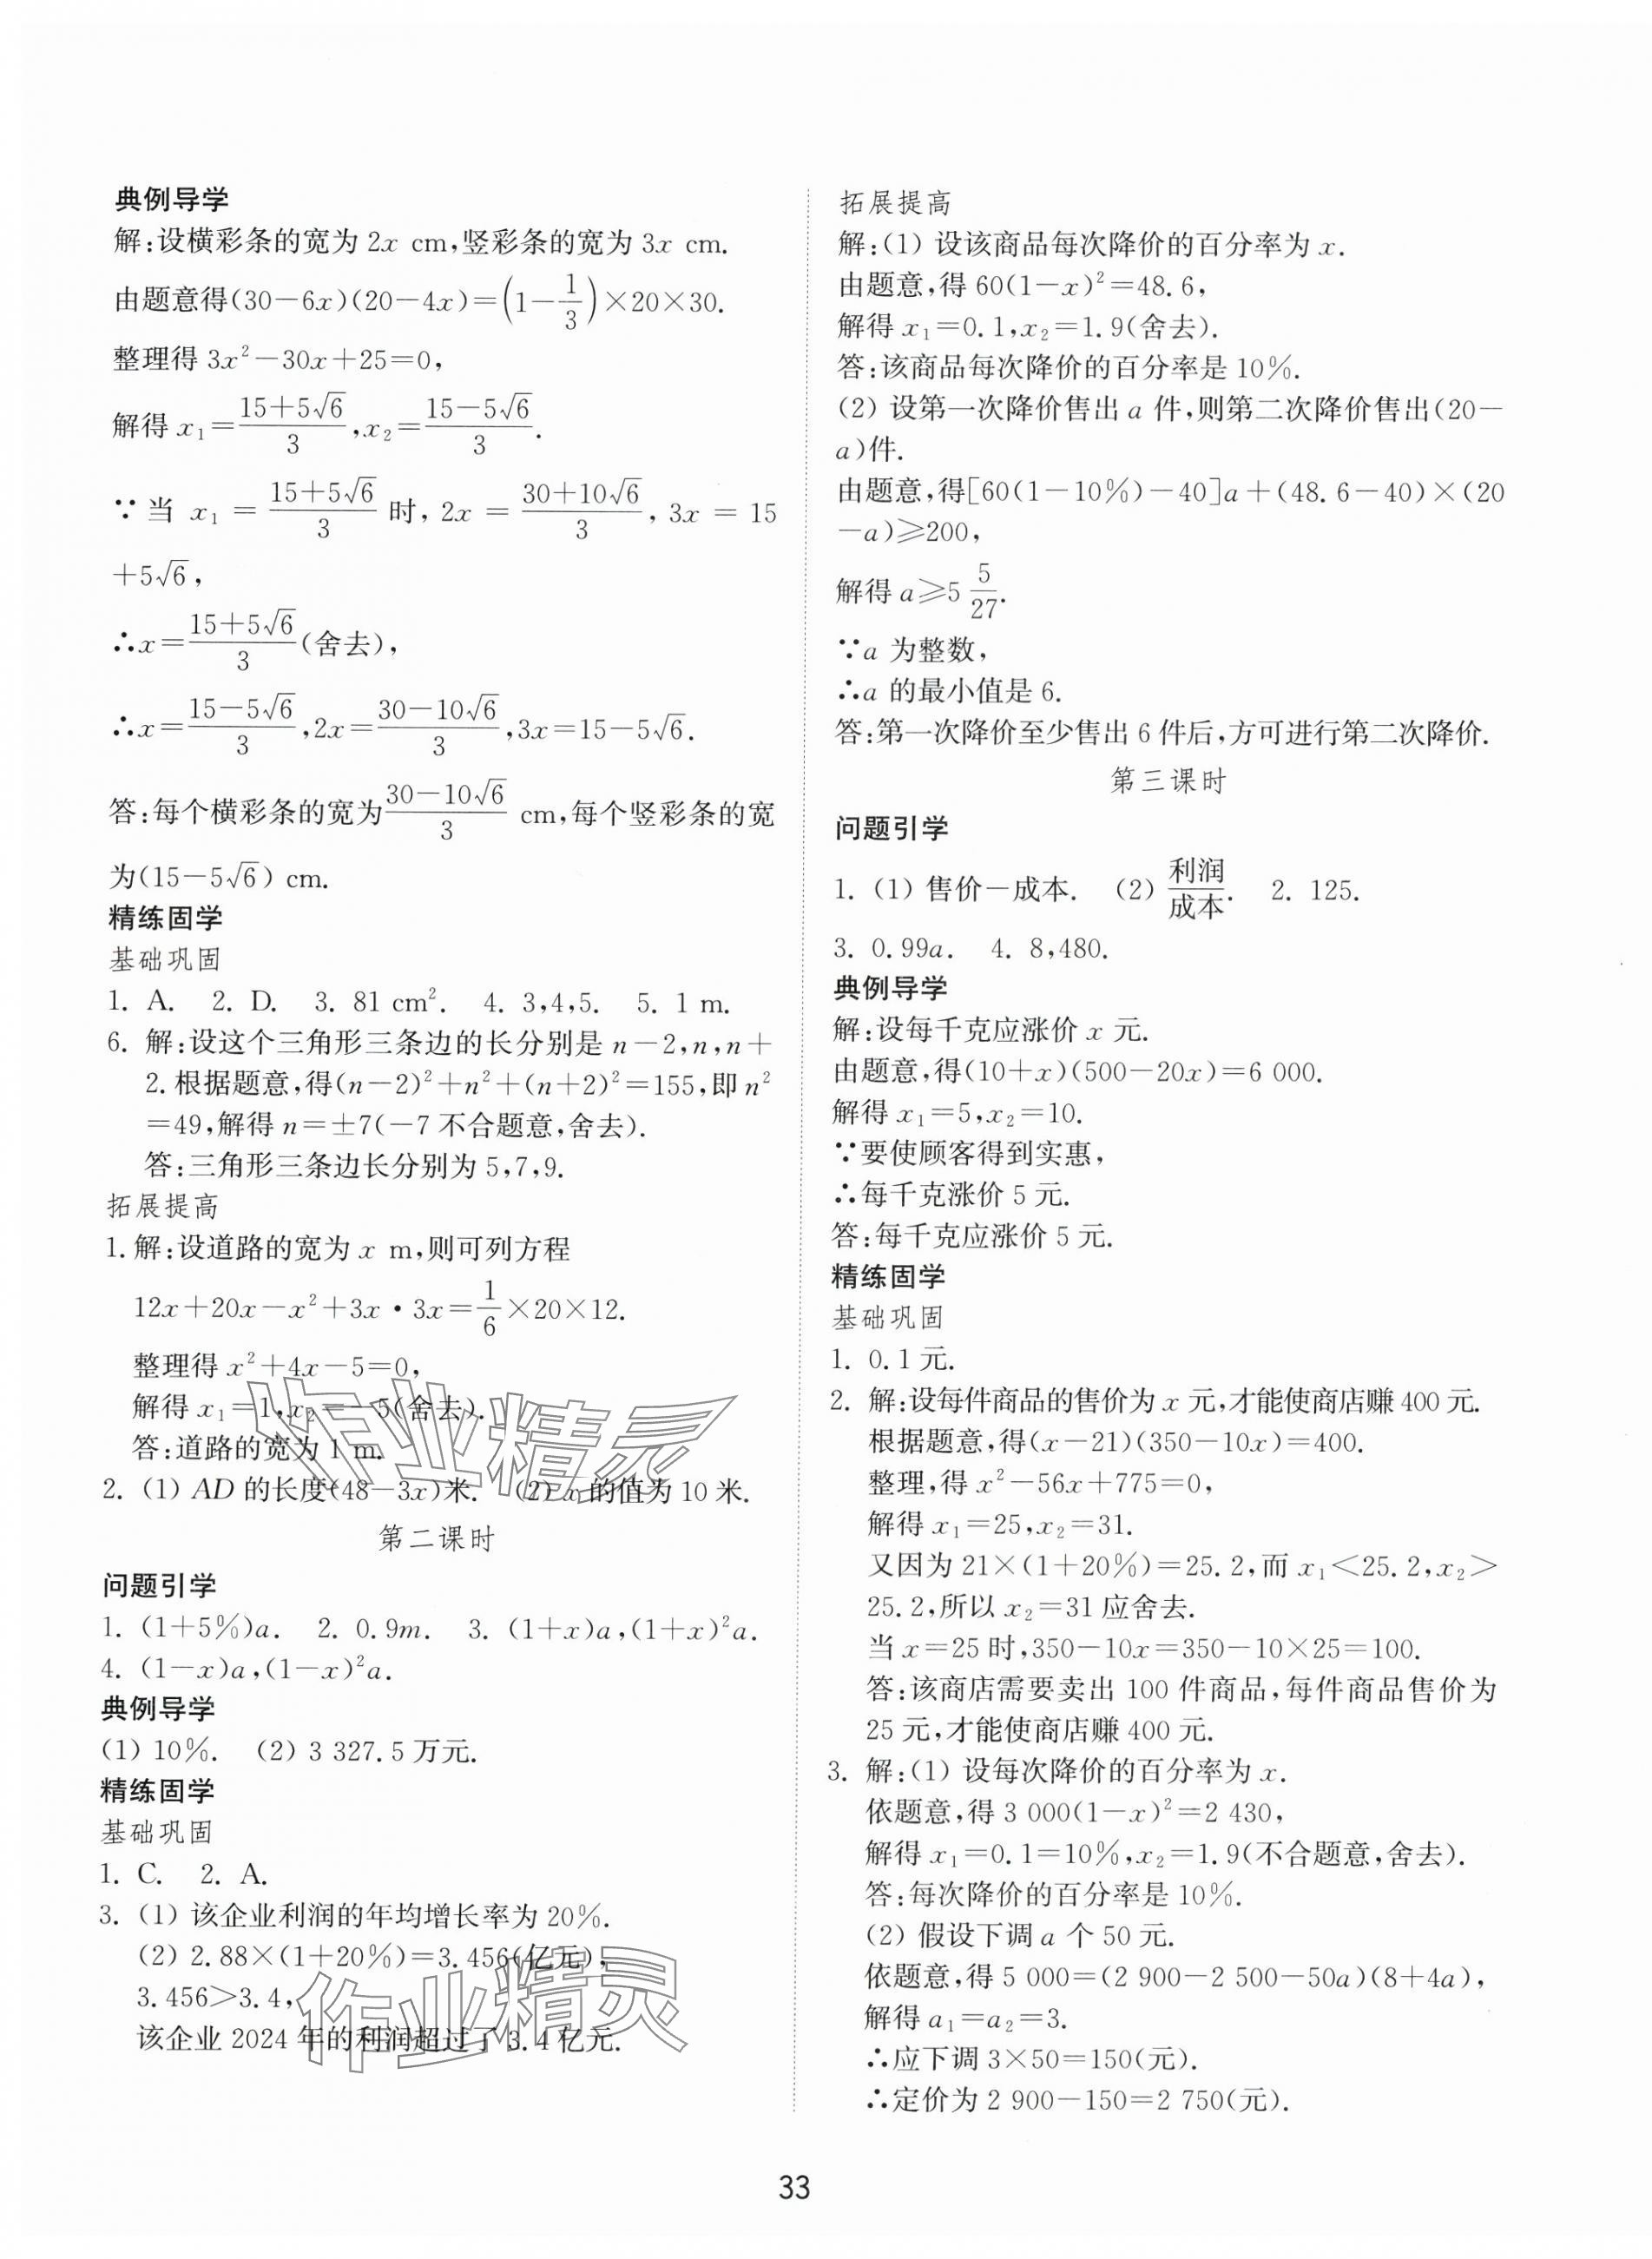 典例导学
解:设横彩条的宽为 2x cm,竖彩条的宽为 3x cm.
由题意得(30－6x)(20－4x)＝(1－1/3)×20×30.
整理得 3x²－30x＋25＝0,
解得 x₁＝(15＋5√6)/3,x₂＝(15－5√6)/3.
∵当 x₁＝(15＋5√6)/3 时, 2x＝(30＋10√6)/3, 3x＝15
＋5√6,
∴x＝(15＋5√6)/3(舍去),
∴x＝(15－5√6)/3,2x＝(30－10√6)/3,3x＝15－5√6.
答:每个横彩条的宽为(30－10√6)/3 cm,每个竖彩条的宽
为(15－5√6) cm.
精练固学
基础巩固
1. A. 2. D. 3. 81 cm². 4. 3,4,5. 5. 1 m.
6. 解:设这个三角形三条边的长分别是 n－2,n,n＋
2.根据题意,得(n－2)²＋n²＋(n＋2)²＝155,即 n²
＝49,解得 n＝±7(－7 不合题意,舍去).
答:三角形三条边长分别为 5,7,9.
拓展提高
1.解:设道路的宽为 x m,则可列方程
12x＋20x－x²＋3x·3x＝1/6×20×12.
整理得 x²＋4x－5＝0,
解得 x₁＝1,x₂＝－5(舍去).
答:道路的宽为 1 m.
2. (1) AD 的长度(48－3x)米. (2) x 的值为 10 米.
第二课时
问题引学
1. (1＋5%)a. 2. 0.9m. 3. (1＋x)a,(1＋x)²a.
4. (1－x)a,(1－x)²a.
典例导学
(1) 10%. (2) 3 327.5 万元.
精练固学
基础巩固
1. C. 2. A.
3. (1) 该企业利润的年均增长率为 20%.
(2) 2.88×(1＋20%)＝3.456(亿元),
3.456＞3.4,
该企业 2024 年的利润超过了 3.4 亿元.
拓展提高
解:(1) 设该商品每次降价的百分率为 x.
由题意,得 60(1－x)²＝48.6,
解得 x₁＝0.1,x₂＝1.9(舍去).
答:该商品每次降价的百分率是 10%.
(2) 设第一次降价售出 a 件,则第二次降价售出(20－
a)件.
由题意,得[60(1－10%)－40]a＋(48.6－40)×(20
－a)≥200,
解得 a≥5 5/27.
∵a 为整数,
∴a 的最小值是 6.
答:第一次降价至少售出 6 件后,方可进行第二次降价.
第三课时
问题引学
1. (1) 售价－成本. (2) 利润/成本. 2. 125.
3. 0.99a. 4. 8,480.
典例导学
解:设每千克应涨价 x 元.
由题意,得(10＋x)(500－20x)＝6 000.
解得 x₁＝5,x₂＝10.
∵要使顾客得到实惠,
∴每千克涨价 5 元.
答:每千克应涨价 5 元.
精练固学
基础巩固
1. 0.1 元.
2. 解:设每件商品的售价为 x 元,才能使商店赚 400 元.
根据题意,得(x－21)(350－10x)＝400.
整理,得 x²－56x＋775＝0,
解得 x₁＝25,x₂＝31.
又因为 21×(1＋20%)＝25.2,而 x₁＜25.2,x₂＞
25.2,所以 x₂＝31 应舍去.
当 x＝25 时,350－10x＝350－10×25＝100.
答:该商店需要卖出 100 件商品,每件商品售价为
25 元,才能使商店赚 400 元.
3. 解:(1) 设每次降价的百分率为 x.
依题意,得 3 000(1－x)²＝2 430,
解得 x₁＝0.1＝10%,x₂＝1.9(不合题意,舍去).
答:每次降价的百分率是 10%.
(2) 假设下调 a 个 50 元.
依题意,得 5 000＝(2 900－2 500－50a)(8＋4a),
解得 a₁＝a₂＝3.
∴应下调 3×50＝150(元).
∴定价为 2 900－150＝2 750(元).
33
作业精灵
作业精灵